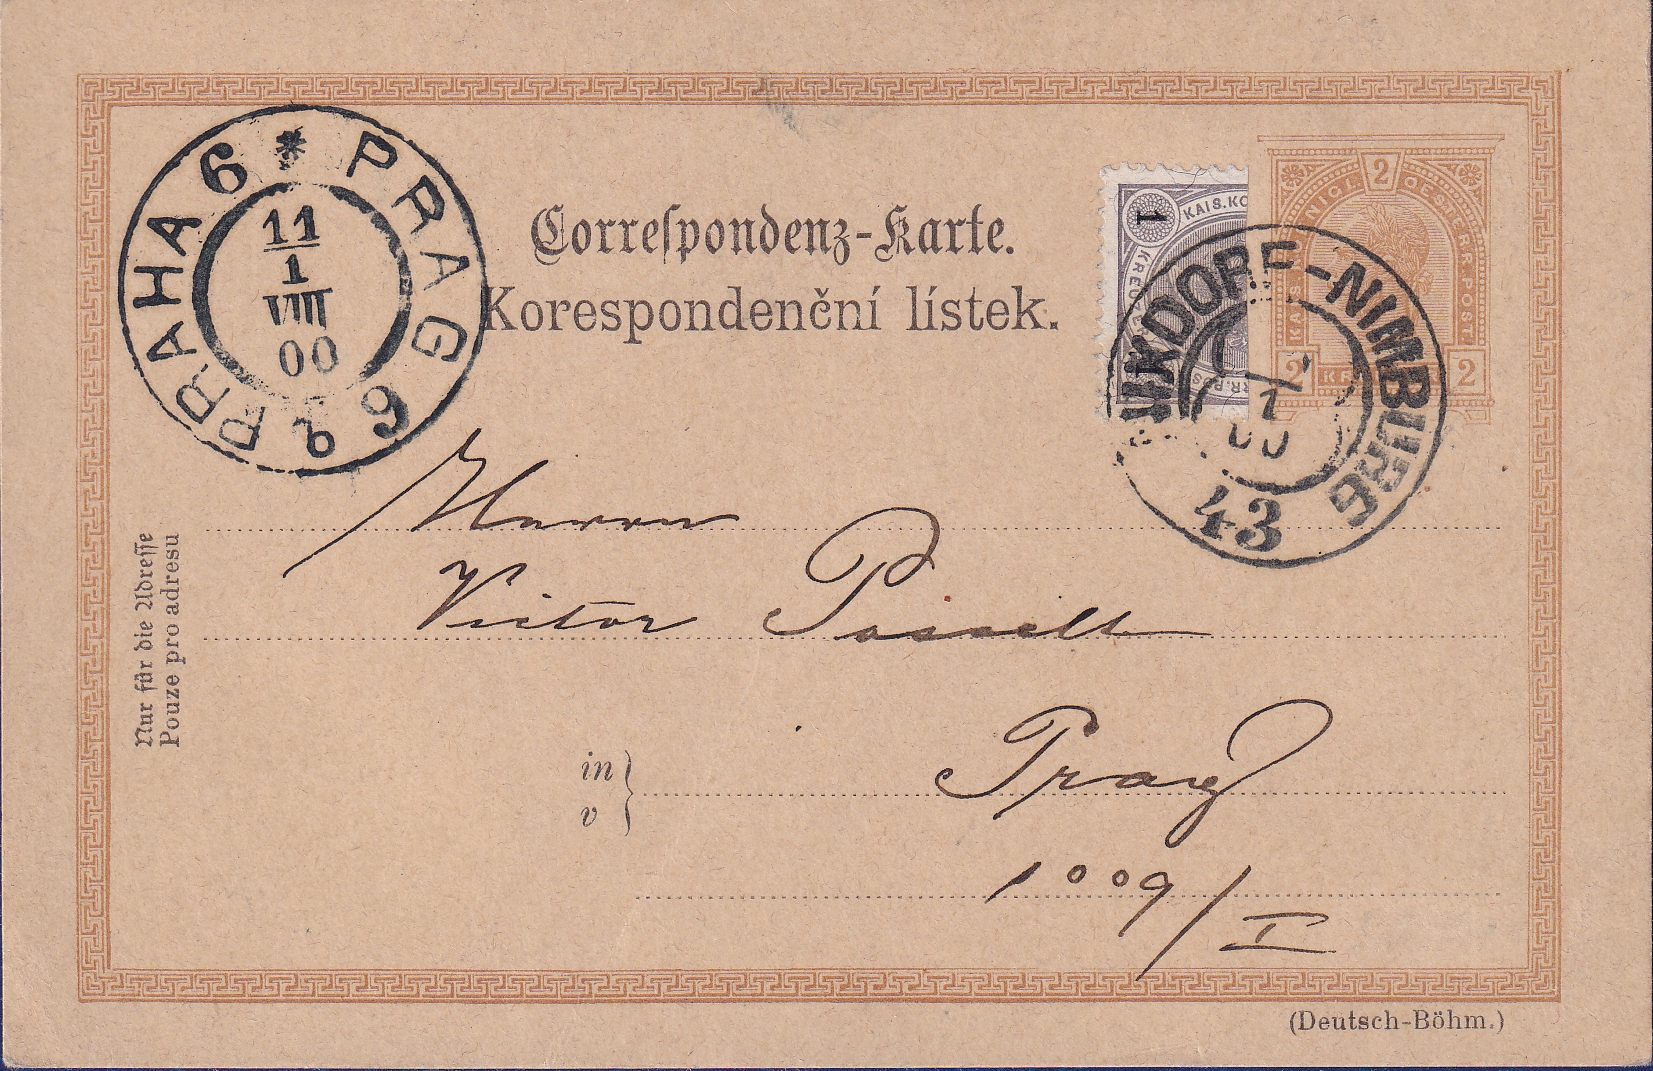 PRAHA 6 * PRAG 6
11
1
VIII
00
Correſpondenz-Karte.
Korespondenční lístek.
1
KAIS.KO
KREUZER
2
NIGL. OESTERR. POST
KAIS.
2
KR
2
KDORF-NIMBURG
1
00
43
Herrn
Victor Posselt
in
v
Prag
1009/I
Nur für die Adreſſe
Pouze pro adresu
(Deutsch-Böhm.)